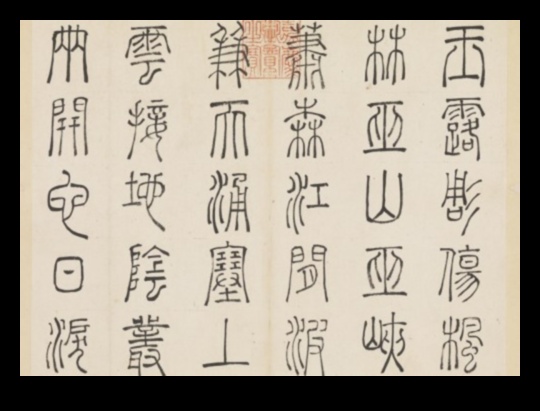 玉露彫傷楓
林巫山巫峽
蕭森江閒波
兼天涌塞上
雲接地陰叢
兩開它日淚